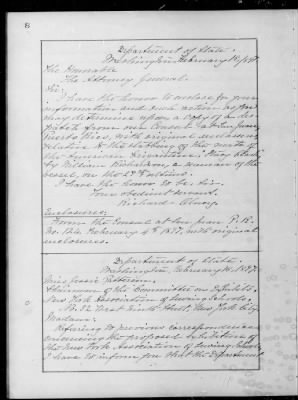 8
Department of State,
Washington, February 18, 1897.
The Honorable
The Attorney General.
Sir:
I have the honor to enclose for your
information and such action as you
may determine upon a copy of a des-
patch from our Consul at San Juan,
Puerto Rico, with original enclosures,
relative to the stabbing of the mate of
the American brigantine
by William Richardson, a seaman of the
vessel, on the ultimo.
I have the honor to be, Sir,
Your obedient servant,
Richard Olney.
Enclosures:
From the Consul at San Juan P.R.
No. February 4th 1897, with original
enclosures.
Department of State,
Washington, February 1897.
Miss Jessie
Chairman of the Committee on Exhibits,
New York Association of Sewing Schools,
No. West Street, New York City.
Madam:
Referring to previous correspondence
concerning the proposed exhibition of
the New York Association of Sewing Schools,
I have to inform you that the Department